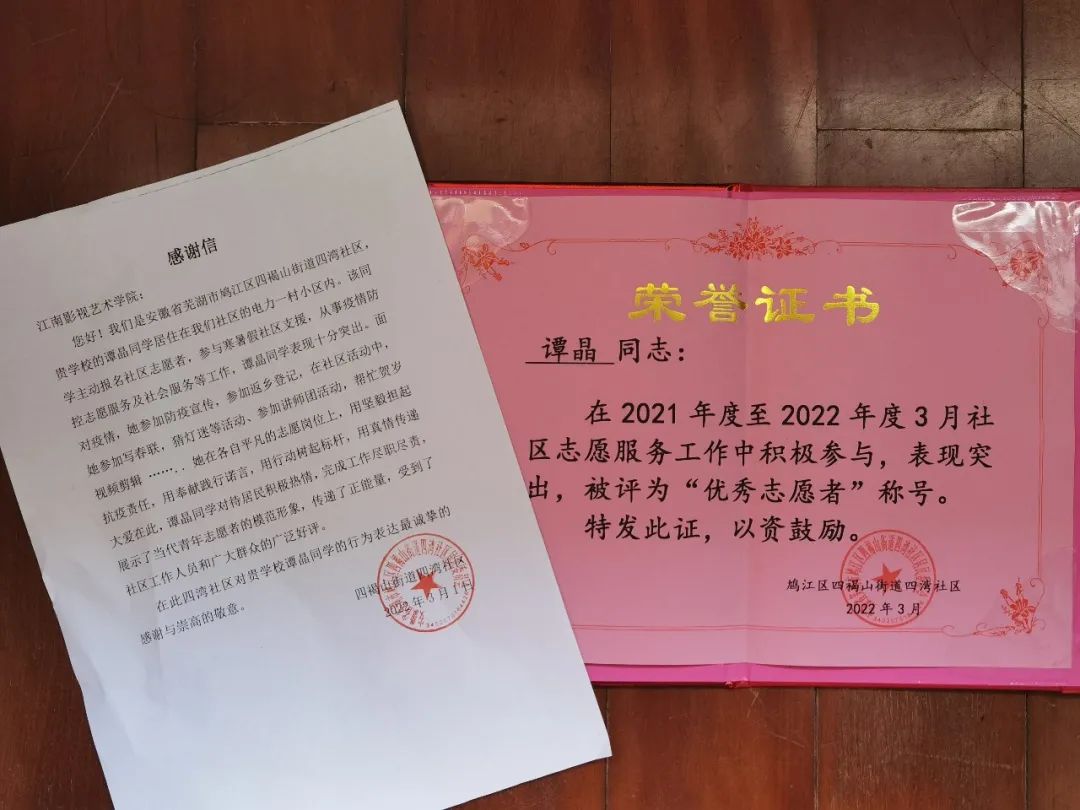 感谢信
江南影视艺术学院:
您好!我们是安徽省芜湖市鸠江区四褐山街道四湾社区,
贵学校的谭晶同学居住在我们社区的电力一村小区内。该同
学主动报名社区志愿者,参与寒暑假社区支援,从事疫情防
控志愿服务及社会服务等工作,谭晶同学表现十分突出。面
对疫情,她参加防疫宣传,参加返乡登记,在社区活动中,
她参加写春联,猜灯迷等活动、参加讲师团活动,帮忙贺岁
视频剪辑……..她在各自平凡的志愿岗位上,用坚毅担起
抗疫责任,用奉献践行诺言,用行动树起标杆,用真情传递
大爱在此,谭晶同学对待居民积极热情,完成工作尽职尽责,
展示了当代青年志愿者的模范形象,传递了正能量,受到了
社区工作人员和广大群众的广泛好评。
在此四湾社区对贵学校谭晶同学的行为表达最诚挚的
感谢与崇高的敬意。
四褐山街道四湾社区
2022年3月1日
荣誉证书
谭晶 同志:
在 2021 年度至 2022 年度 3 月社
区志愿服务工作中积极参与,表现突
出,被评为“优秀志愿者”称号。
特发此证,以资鼓励。
鸠江区四褐山街道四湾社区
2022 年 3 月